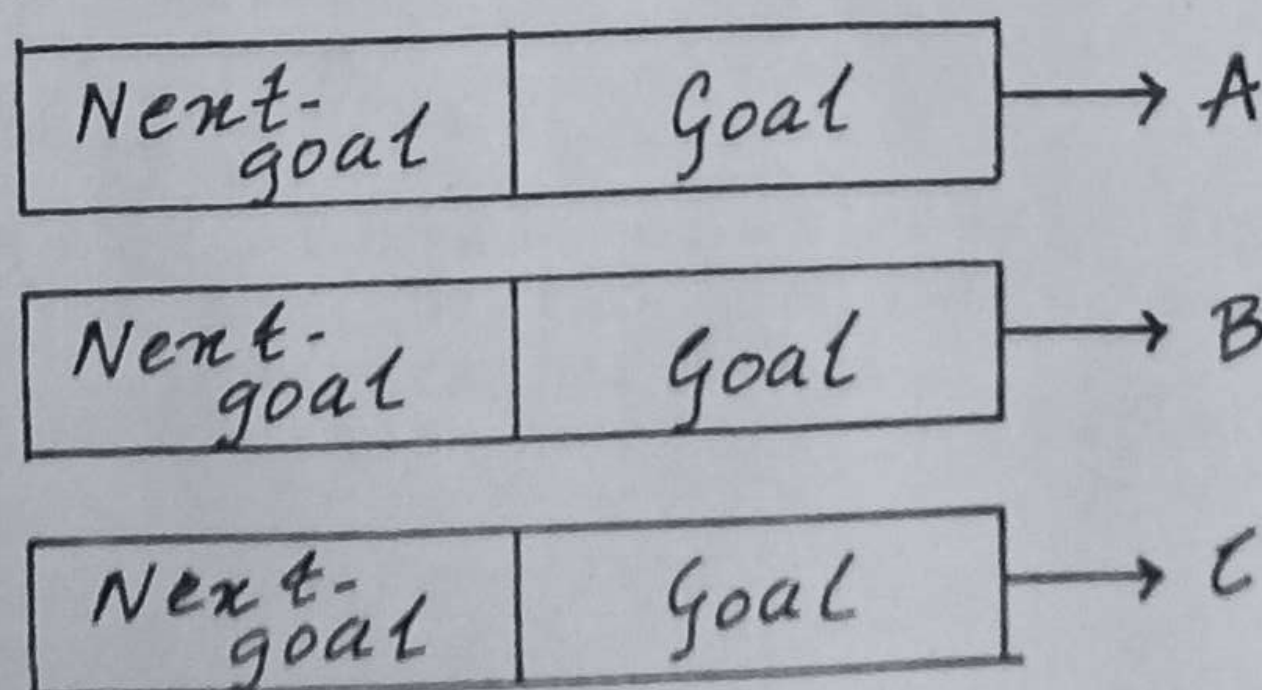 Next-
goal
Goal
A
Next-
goal
Goal
B
Next-
goal
Goal
C